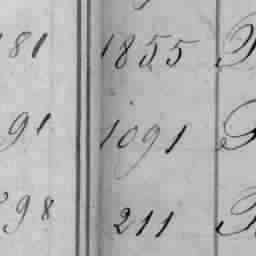 81 1855
91 1091
98 211